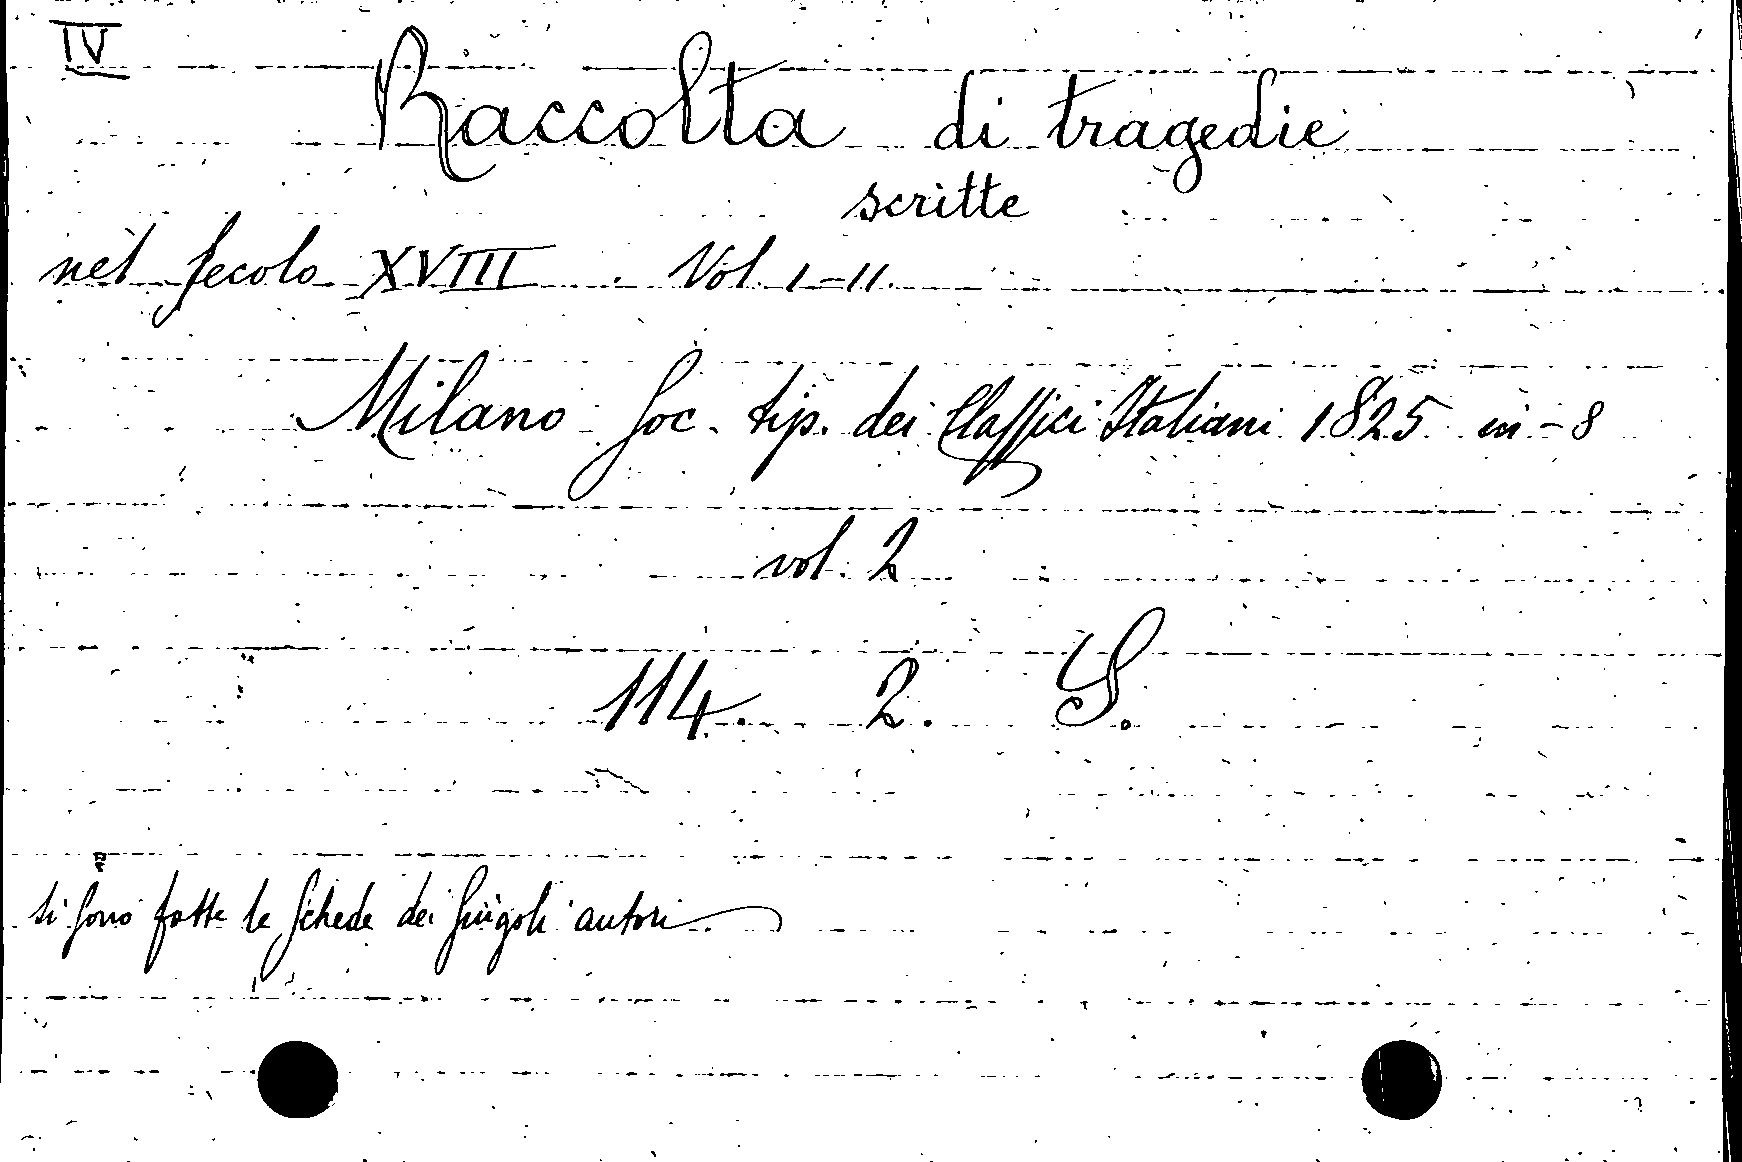 IV
Raccolta di tragedie
scritte
nel secolo XVIII. Vol. I-II.
Milano Soc. tip. dei Classici Italiani 1825 in-8
vol. 2
114. 2. S.
si sono fatte le schede dei singoli autori